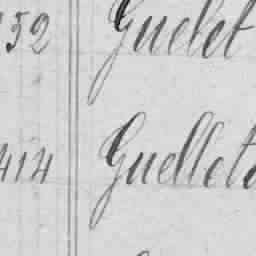 152 Guelet
414 Guellet